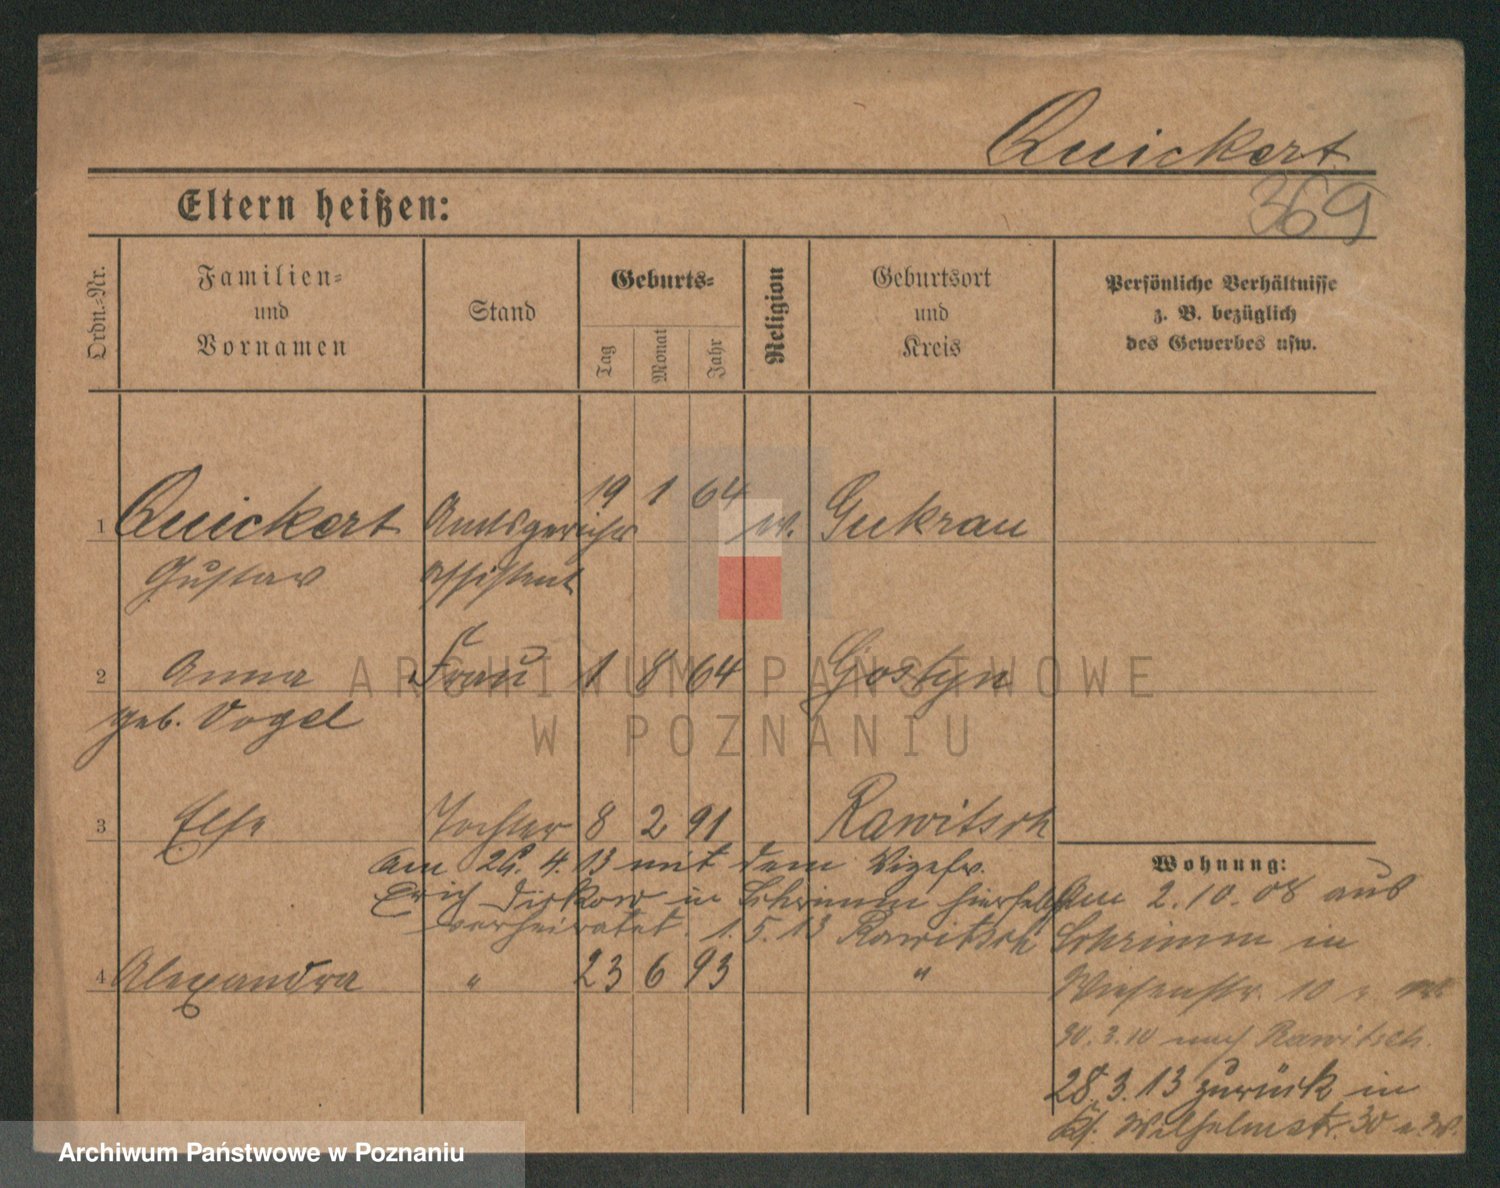 Quickert
369
Eltern heißen:
Ordn.-Nr.
Familien-
und
Vornamen
Stand
Geburts-
Tag
Monat
Jahr
Religion
Geburtsort
und
Kreis
Persönliche Verhältnisse
z. B. bezüglich
des Gewerbes usw.
1 Quickert Amtsgerichts 19 1 64 ev. Guhrau
Gustav assistent
2 Anna Frau 1 8 64 Gostyn
geb. Vogel
3 Else Tochter 8 2 91 Rawitsch
am 26. 4. 13 mit dem Vizefw.
Erich in Schrimm hierselbst
verheiratet. 1. 5. 13 Rawitsch
4 Alexandra " 23 6 93 "
Wohnung:
Am 2.10.08 aus
Schrimm in
Wiesenstr. 10
30.3.10 nach Rawitsch.
28.3.13 zurück in
Wilhelmstr. 30
ARCHIWUM PAŃSTWOWE
W POZNANIU
Archiwum Państwowe w Poznaniu